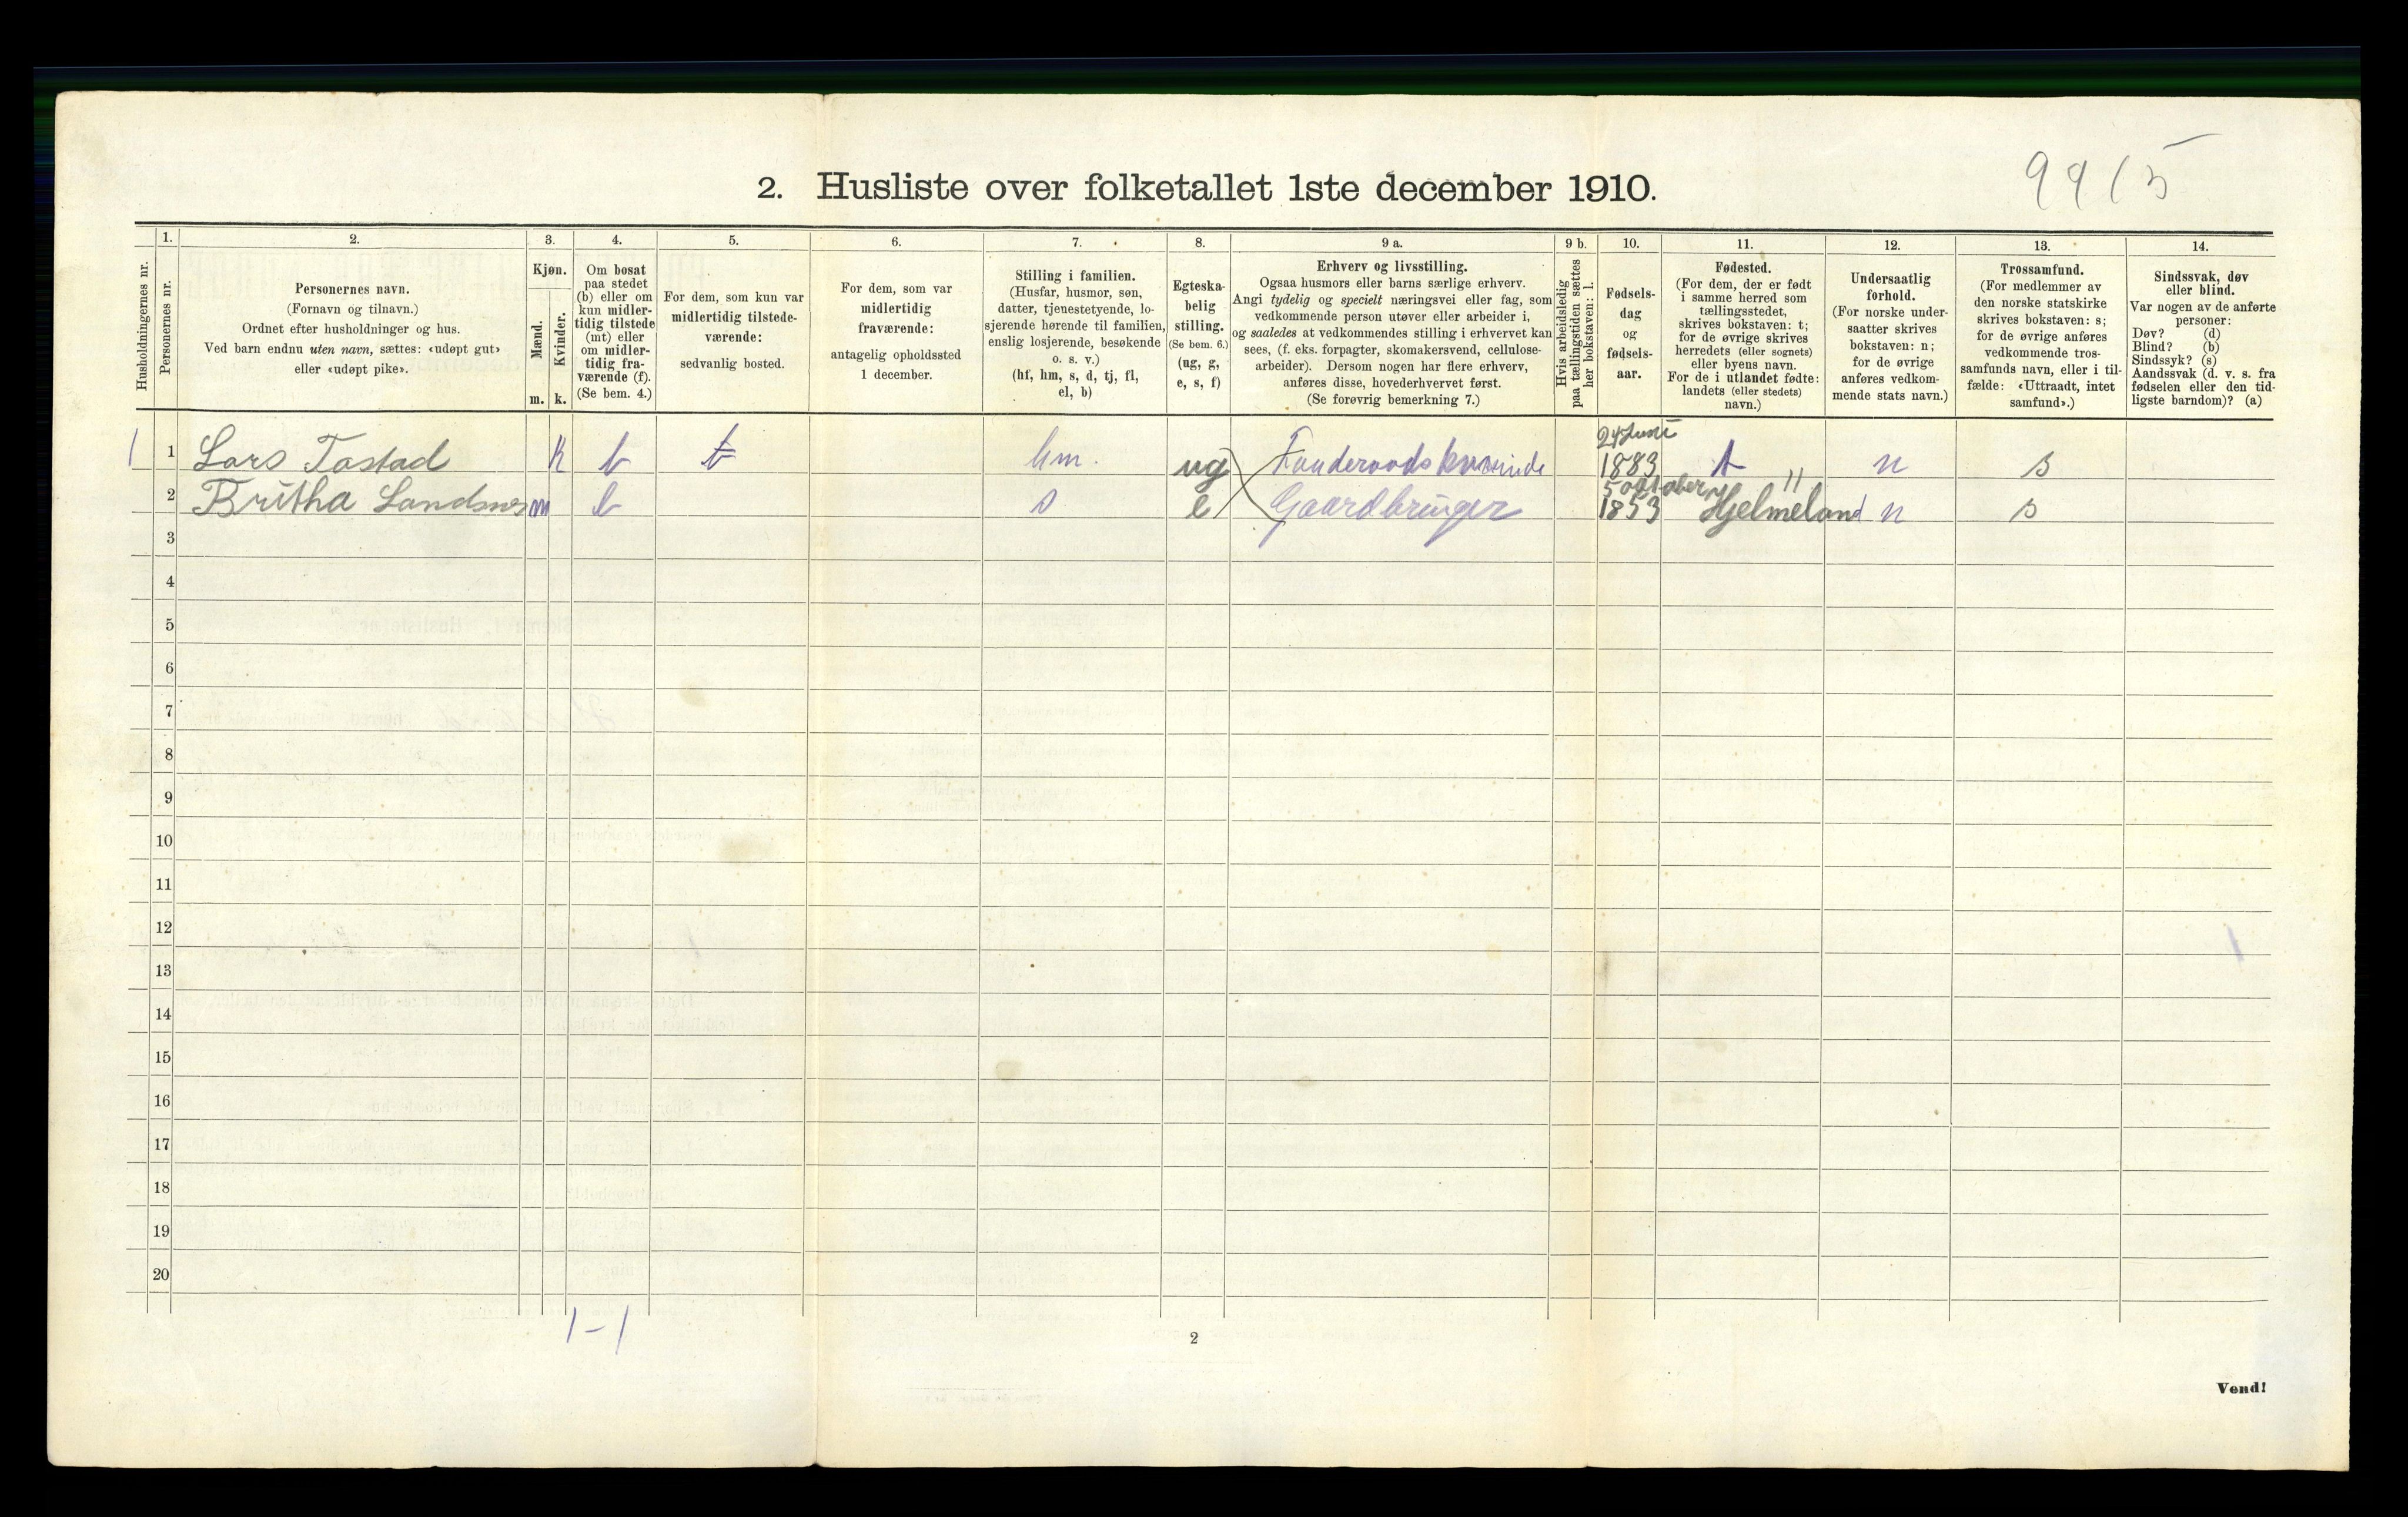 9915
2. Husliste over folketallet 1ste december 1910.
Husholdningernes nr.
1.
Personernes nr.
2.
Personernes navn.
(Fornavn og tilnavn.)
Ordnet efter husholdninger og hus.
Ved barn endnu uten navn, sættes: «udøpt gut»
eller «udøpt pike».
3.
Kjøn.
Mænd.
Kvinder.
m. k.
4.
Om bosat
paa stedet
(b) eller om
kun midler-
tidig tilstede
(mt) eller
om midler-
tidig fra-
værende (f).
(Se bem. 4.)
5.
For dem, som kun var
midlertidig tilstede-
værende:
sedvanlig bosted.
6.
For dem, som var
midlertidig
fraværende:
antagelig opholdssted
1 december.
7.
Stilling i familien.
(Husfar, husmor, søn,
datter, tjenestetyende, lo-
sjerende hørende til familien,
enslig losjerende, besøkende
o. s. v.)
(hf, hm, s, d, tj, fl,
el, b)
8.
Egteska-
belig
stilling.
(Se bem. 6.)
(ug, g,
e, s, f)
9 a.
Erhverv og livsstilling.
Ogsaa husmors eller barns særlige erhverv.
Angi tydelig og specielt næringsvei eller fag, som
vedkommende person utøver eller arbeider i,
og saaledes at vedkommendes stilling i erhvervet kan
sees, (f. eks. forpagter, skomakersvend, cellulose-
arbeider). Dersom nogen har flere erhverv,
anføres disse, hovederhvervet først.
(Se forøvrig bemerkning 7.)
9 b.
Hvis arbeidsledig
paa tællingstiden sættes
her bokstaven: l.
10.
Fødsels-
dag
og
fødsels-
aar.
11.
Fødested.
(For dem, der er født
i samme herred som
tællingsstedet,
skrives bokstaven: t;
for de øvrige skrives
herredets (eller sognets)
eller byens navn.
For de i utlandet fødte:
landets (eller stedets)
navn.)
12.
Undersaatlig
forhold.
(For norske under-
saatter skrives
bokstaven: n;
for de øvrige
anføres vedkom-
mende stats navn.)
13.
Trossamfund.
(For medlemmer av
den norske statskirke
skrives bokstaven: s;
for de øvrige anføres
vedkommende tros-
samfunds navn, eller i til-
fælde: «Uttraadt, intet
samfund».)
14.
Sindssvak, døv
eller blind.
Var nogen av de anførte
personer:
Døv? (d)
Blind? (b)
Sindssyk? (s)
Aandssvak (d. v. s. fra
fødselen eller den tid-
ligste barndom)? (a)
1 1 Lars Tastad k b t hm. ug Fonderaads kvinde 24 Juni 1883 t n s
2 Britha Landsnes m b s e Gaardbruger 5 october 1853 Hjelmeland n s
3
4
5
6
7
8
9
10
11
12
13
14
15
16
17
18
19
20
1-1
2
Vend!